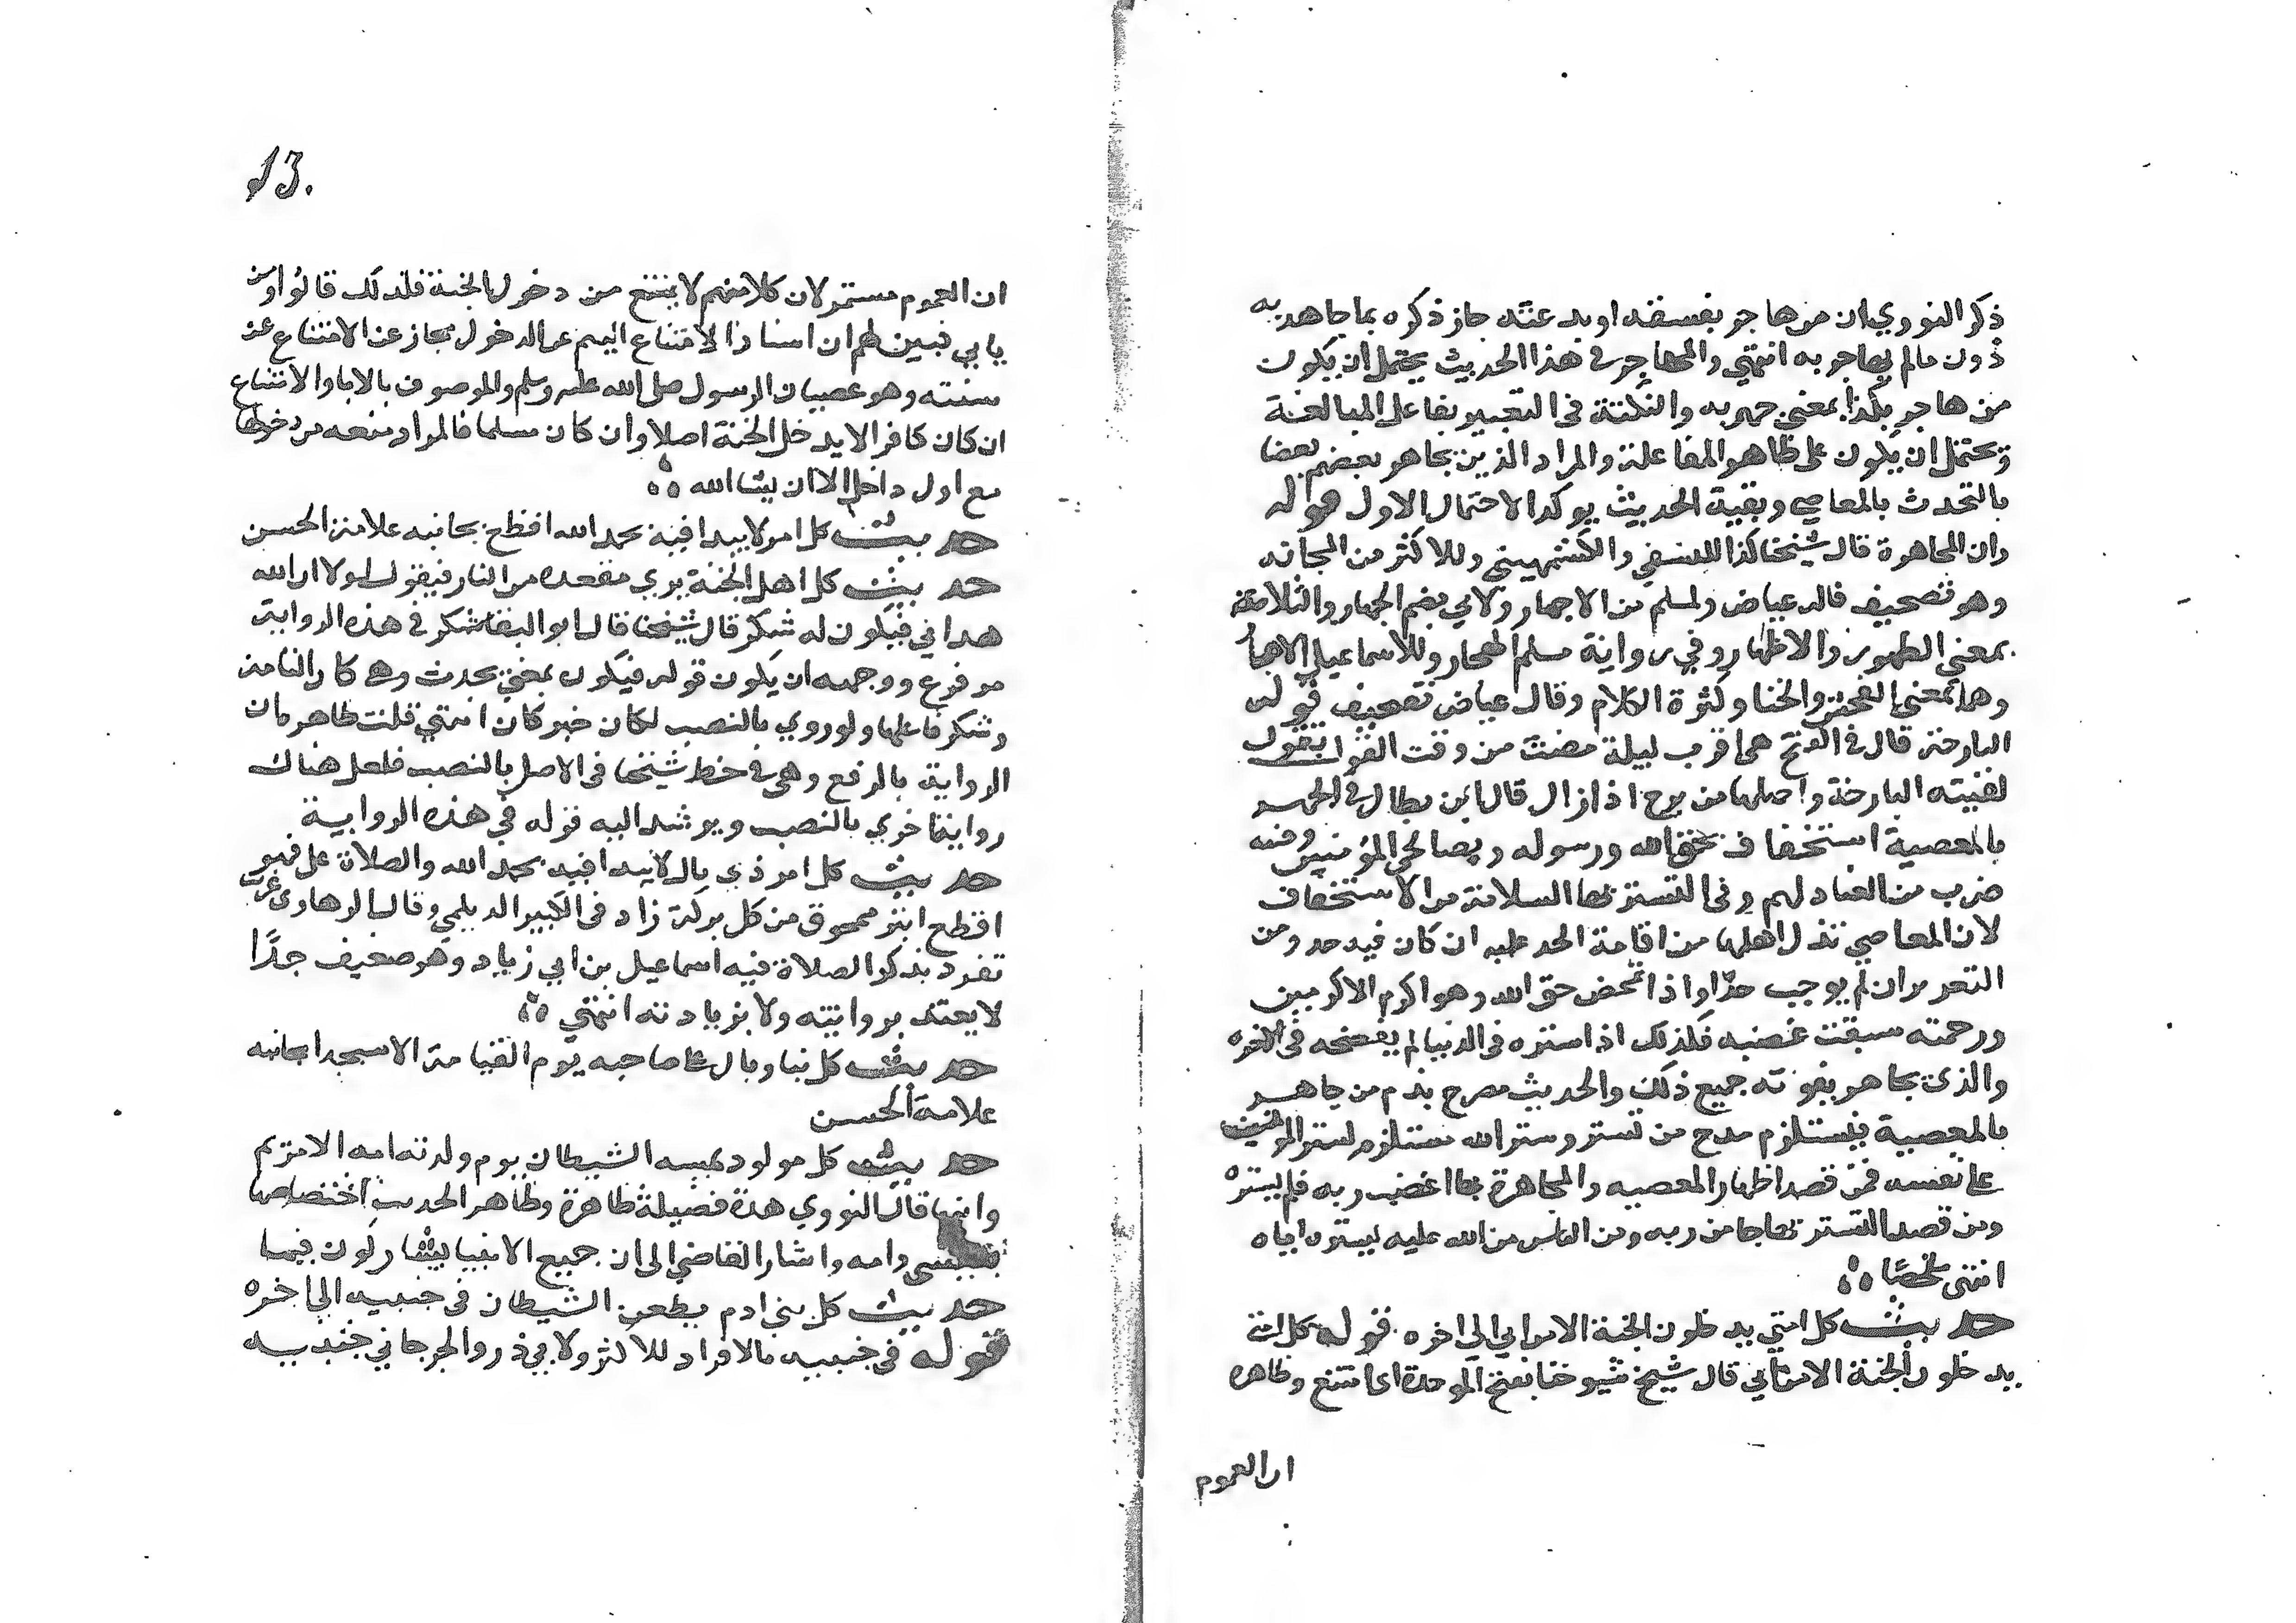 ذكر النووي ان من جاهر بفسقه او بدعته جاز ذكره بما جاهر به
دون ما لم يجاهر به انتهي والمجاهر في هذا الحديث يحتمل ان يكون
من جاهر بكذا بمعني جهر به والنكتة في التعبير بفاعل المبالغة
ويحتمل ان يكون على ظاهر المفاعلة والمراد الذين يجاهر بعضهم بعضا
بالتحدث بالمعاصي وبقية الحديث يوكد الاحتمال الاول قوله
وان المجاهرة قال شيخنا كذا للنسفي والكشميهني وللاكثر من المجانه
وهو تصحيف قاله عياض ولمسلم من الاجهار ولابي نعيم الجهار والثلاثة
بمعني الظهور والاظهار وفي رواية مسلم الهجار وللاسماعيلي الاهجار
وهما بمعني الفحش والخنا وكثرة الكلام وقال عياض تصحيف قوله
البارحة قال في الفتح هي اقرب ليلة مضت من وقت القول يقول
لقيته البارحة واصلها من برح اذا زال قال ابن بطال في الجهر
بالمعصية استخفاف بحق الله ورسوله وبصالحي المؤمنين وفيه
ضرب من العناد لهم وفي التستر بها السلامة من الاستخفاف
لان المعاصي تذل اهلها من اقامة الحد عليه ان كان فيه حد ومن
التعزير ان لم يوجب حدا واذا تمحض حق الله وهو اكرم الاكرمين
ورحمته سبقت غضبه فلذلك اذا ستره في الدنيا لم يفضحه في الاخره
والذي يجاهر يفوته جميع ذلك والحديث مصرح بذم من جاهر
بالمعصية فيستلزم مدح من تستر وستر الله مستلزم لستر المومنين
على نفسه فمن قصد اظهار المعصيه والمجاهرة بها اغضب ربه فلم يستره
ومن قصد التستر بها حيا من ربه ومن الناس من الله عليه بستره اياه
انتهى ملخصا
حديث كل امتي يدخلون الجنة الا من ابي الى اخره قوله كل امتي
يدخلون الجنة الا من ابي قال شيخ شيوخنا بفتح الموحدة اي امتنع وظاهره
ان العموم
13.
ان العموم مستمر لان كلا منهم لا يمتنع من دخول الجنة فلذلك قالوا ومن
يابي فبين لهم ان اسناد الامتناع اليهم عن الدخول مجاز عن الامتناع عن
سنته وهو عصيان الرسول صلى الله عليه وسلم والموصوف بالابا والامتناع
ان كان كافرا لا يدخل الجنة اصلا وان كان مسلما فالمراد منعه من دخولها
مع اول داخل الا ان يشا الله
حديث كل امر لا يبدا فيه بحمد الله اقطع بجانبه علامة الحسن
حديث كل اهل الجنة يري مقعده من النار فيقول لولا ان الله
هداني فيكون له شكر قال شيخنا قال ابو البقا شكر في هذه الرواية
مرفوع ووجهه ان يكون قوله فيكون بمعني يحدث وهي كان التامة
وشكر فاعلها ولو روي بالنصب لكان خبر كان انتهي قلت ظاهره ان
الرواية بالرفع وهي في خط شيخنا في الاصل بالنصب فلعل هناك
رواية اخري بالنصب ويرشد اليه قوله في هذه الرواية
حديث كل امر ذي بال لا يبدا فيه بحمد الله والصلاة على فهو
اقطع ابتر ممحوق من كل بركة زاد في الكبير الديلمي وقال الرهاوى غريب
تفرد بذكر الصلاة فيه اسماعيل بن ابي زياد وهو ضعيف جدًا
لا يعتد بروايته ولا بزيادته انتهي
حديث كل بنا وبال على صاحبه يوم القيامة الا مسجدا بجانبه
علامة الحسن
حديث كل مولود يمسه الشيطان يوم ولدته امه الا مريم
وابنها قال النووي هذه فضيلة ظاهرة وظاهر الحديث اختصاصها
بعيسى وامه واشار القاضي الى ان جميع الانبيا يشاركون فيها
حديث كل بني ادم يطعن الشيطان في جنبيه الي اخره
قوله في جنبيه بالافراد للاكثر ولابي ذر والجرجاني جنبيه